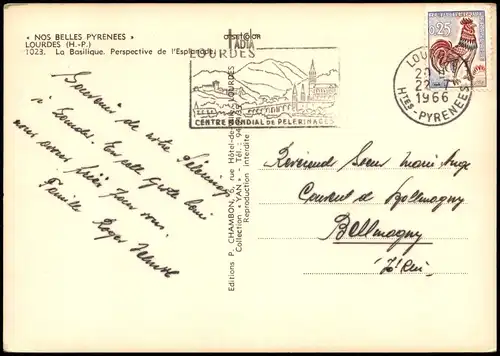 « NOS BELLES PYRENEES »
LOURDES (H.-P.)
1023. La Basilique. Perspective de l'Esplanade.
LOURDES
CENTRE MONDIAL DE PELERINAGES
0,25
22-7
1966
HTES-PYRENEES
Souvenir de notre Pèlerinage
à Lourdes. En cette Grotte bénie
nous avons prié pour vous.
Famille Roger
Editions P. CHAMBON, 6, rue Hôtel-de- LOURDES
Collection « YAN » - Tél. : 94
Reproduction interdite
Révérende Soeur Marie Ange
Couvent de Bellmagny
Bellmagny
Ht Rhin